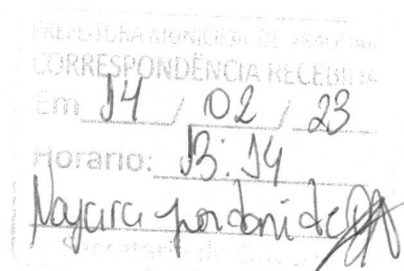 PREFEITURA MUNICIPAL DE
CORRESPONDÊNCIA RECEBIDA
Em 14 / 02 / 23
Horario: 13:14
Nayara
Secretaria de